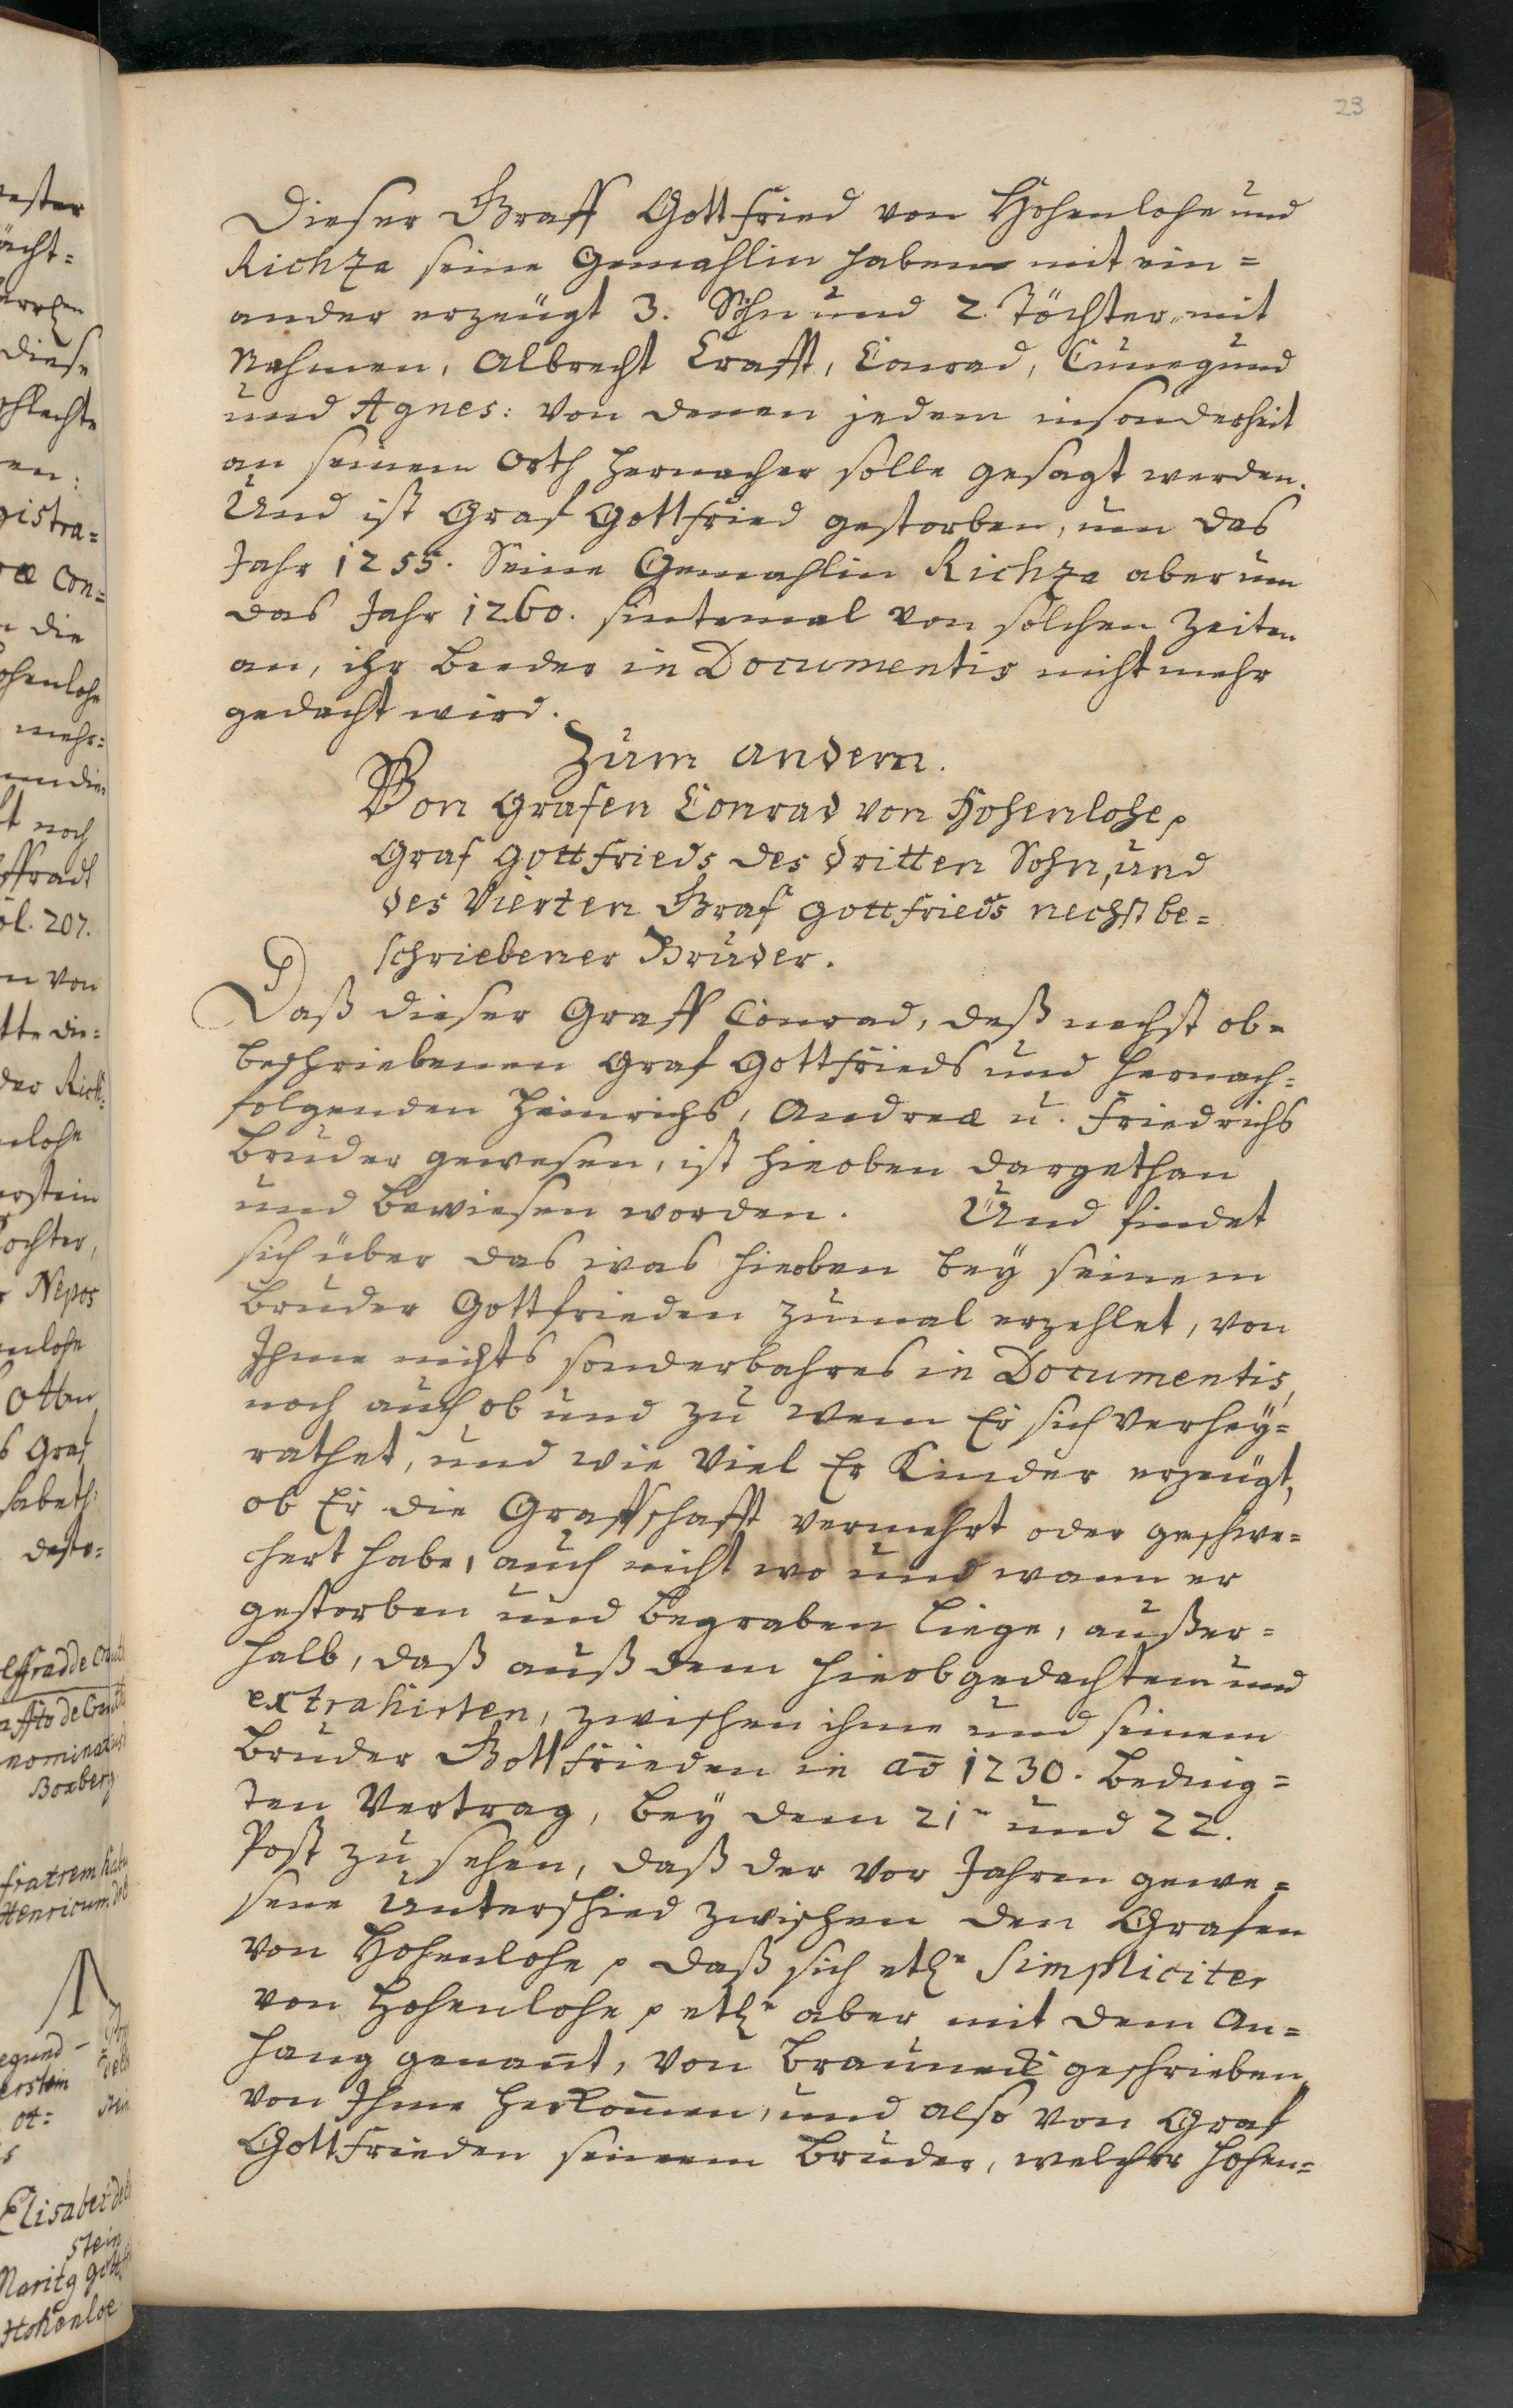 23
Dieser Graff Gottfried von Hohenlohe und
Richza seine Gemahlin haben mit ein=
ander erzeügt 3. Söhn und 2. Töchter, mit
Nahmen, Albrecht Crafft, Conrad, Cunegund
und Agnes: von denen jedem insonderheit
an seinem Orth hernacher solle gesagt werden.
Und ist Graf Gottfried gestorben, um das
Jahr 1255. Seine Gemahlin Richza aber um
das Jahr 1260. sintemal von solchen Zeiten
an, ihr beeder in Documentis nicht mehr
gedacht wird.
Zum andern.
Von Grafen Conrad von Hohenlohe,
Graf Gottfrieds des dritten Sohn, und
des Vierten Graf Gottfrieds nechst be=
schriebener Bruder.
Daß dieser Graff Conrad, deß nechst ob=
beschriebenen Graf Gottfrieds und hernach=
folgenden Heinrichs, Andreæ u. Friedrichs
Bruder gewesen, ist hieoben dargethan
und bewiesen worden. Und findet
sich über das was hieoben beÿ seinem
Bruder Gottfrieden zumal erzehlet, von
Ihme nichts sonderbahres in Documentis,
noch auch ob und zu wem Er sich verheÿ=
rathet, und wie viel Er Kinder erzeügt,
ob Er die Graffschafft vermehrt oder geschwe=
chert habe, auch nicht wo und wann er
gestorben und begraben liege, außer=
halb, daß auß dem hieobgedachtem und
extrahirten, zwischen ihme und seinem
Bruder Gottfrieden in aō 1230. beding=
ten Vertrag, beÿ dem 21n und 22.
Post zu sehen, daß der vor Jahren gewe=
sene Unterschied zwischen den Grafen
von Hohenlohe, daß sich etl. Simpliciter
von Hohenlohe, etl. aber mit dem An=
hang genañt, von Brauneck geschrieben,
von Ihme herkom̄en, und also von Graf
Gottfrieden seinem Bruder, welcher Hohen=